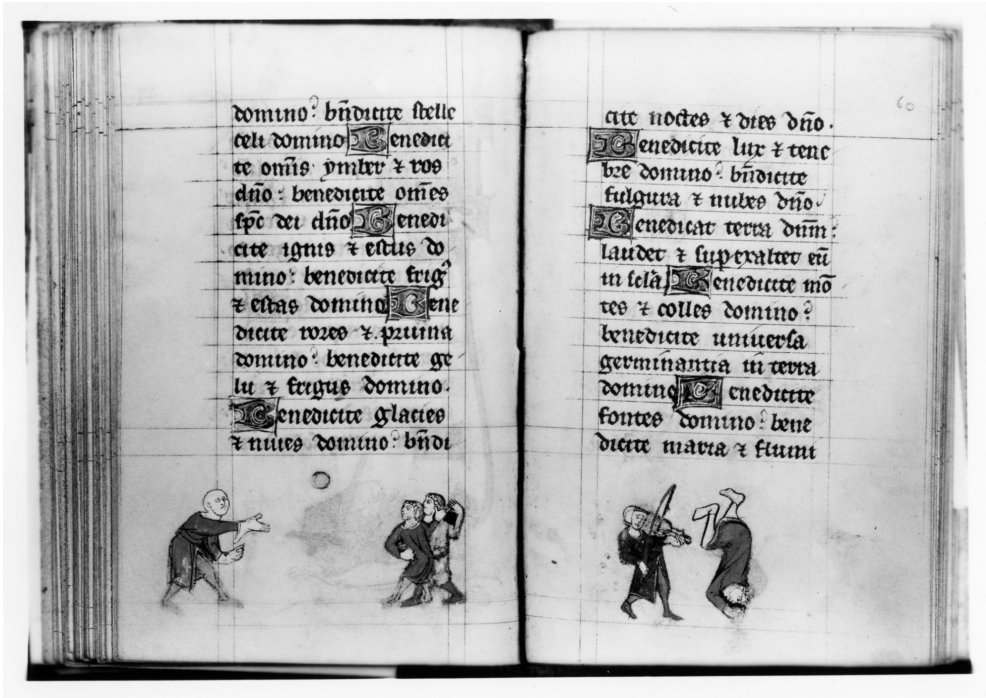 domino? bn̄dicite stelle
celi domino Benedici
te om̄is ymber ⁊ ros
dn̄o: benedicite om̄es
sp̄c dei dn̄o Benedi
cite ignis ⁊ estus do
mino: benedicite frigꝰ
⁊ estas domino Bene
dicite rores ⁊ pruina
domino: benedicite ge
lu ⁊ frigus domino.
Benedicite glacies
⁊ niues domino: bn̄di
60
cite noctes ⁊ dies dn̄o.
Benedicite lux ⁊ tene
bre domino: bn̄dicite
fulgura ⁊ nubes dn̄o.
Benedicat terra dn̄m:
laudet ⁊ superexaltet eū
in scl̄a Benedicite mō
tes ⁊ colles domino?
benedicite uniuersa
germinantia in terra
domino Benedicite
fontes domino: bene
dicite maria ⁊ flumi